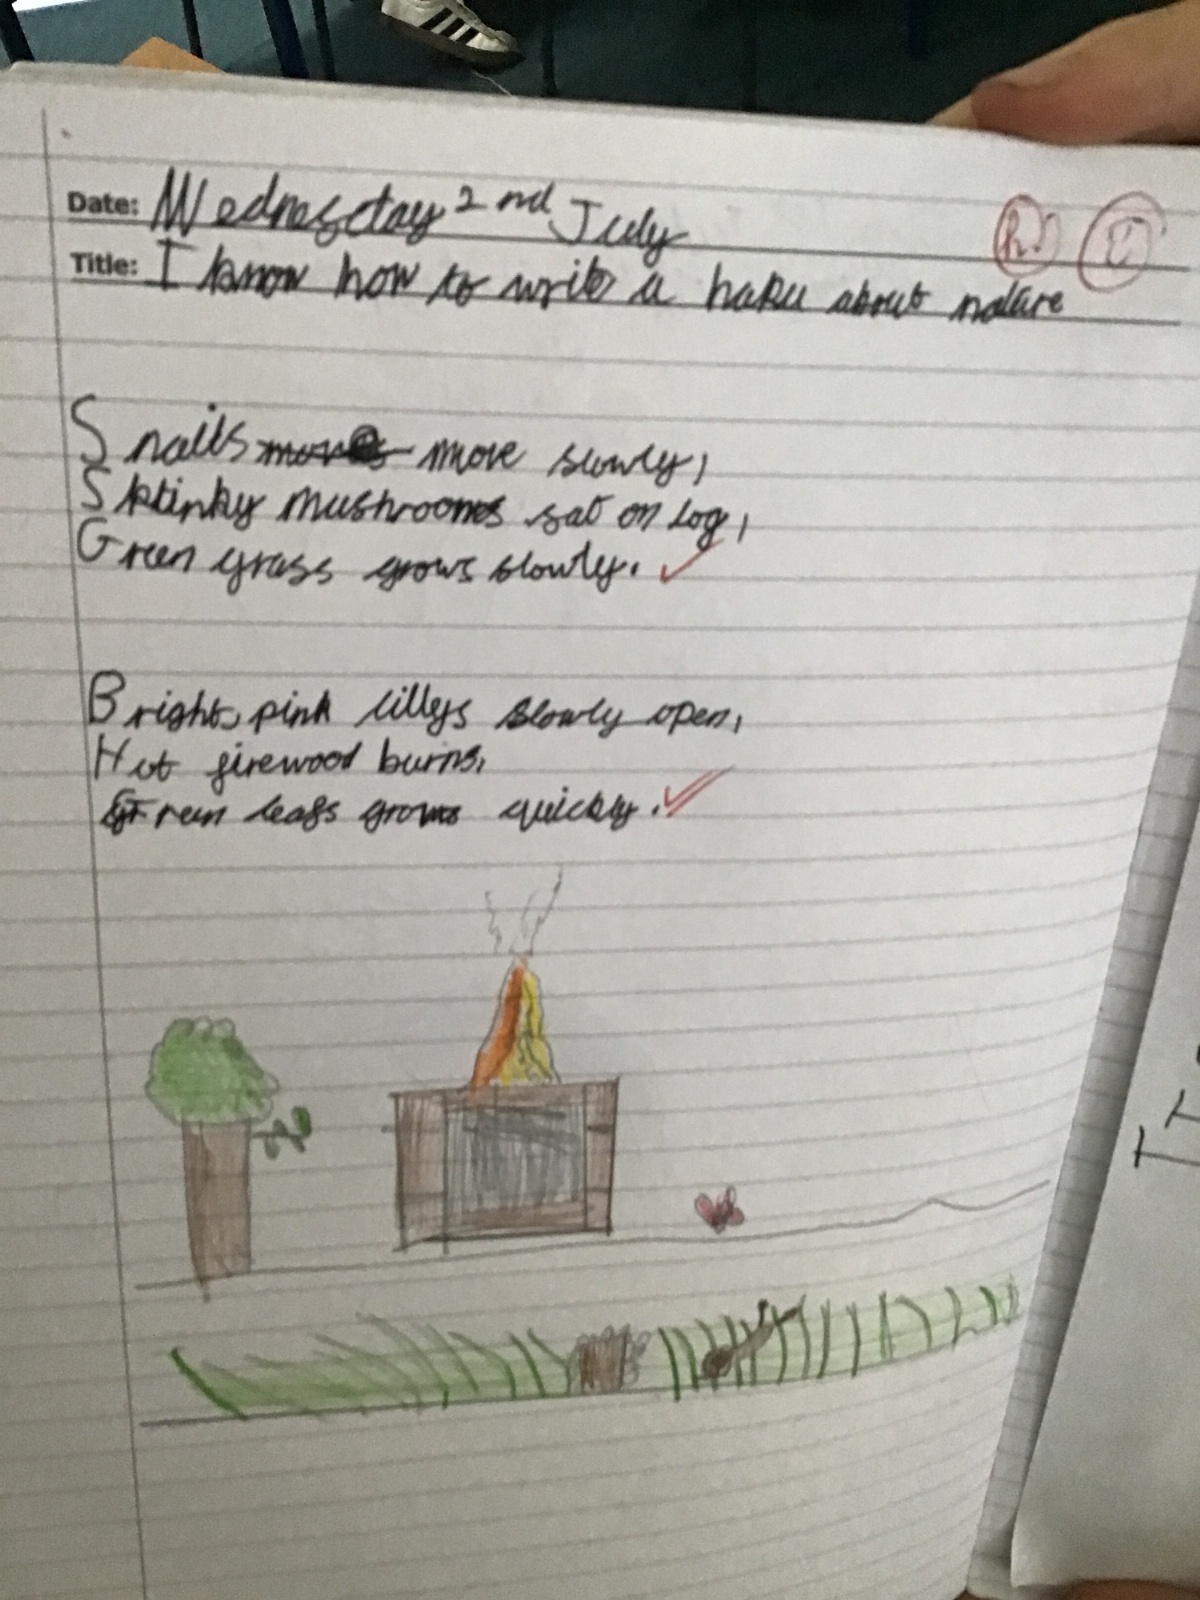 Date: Wednesday 2nd July
Title: I know how to write a haku about nature
Snails move slowly,
Stinky mushrooms sat on log,
Green grass grows slowly.
Bright, pink lillys slowly open,
Hot firewood burns,
Green leafs grows quickly.